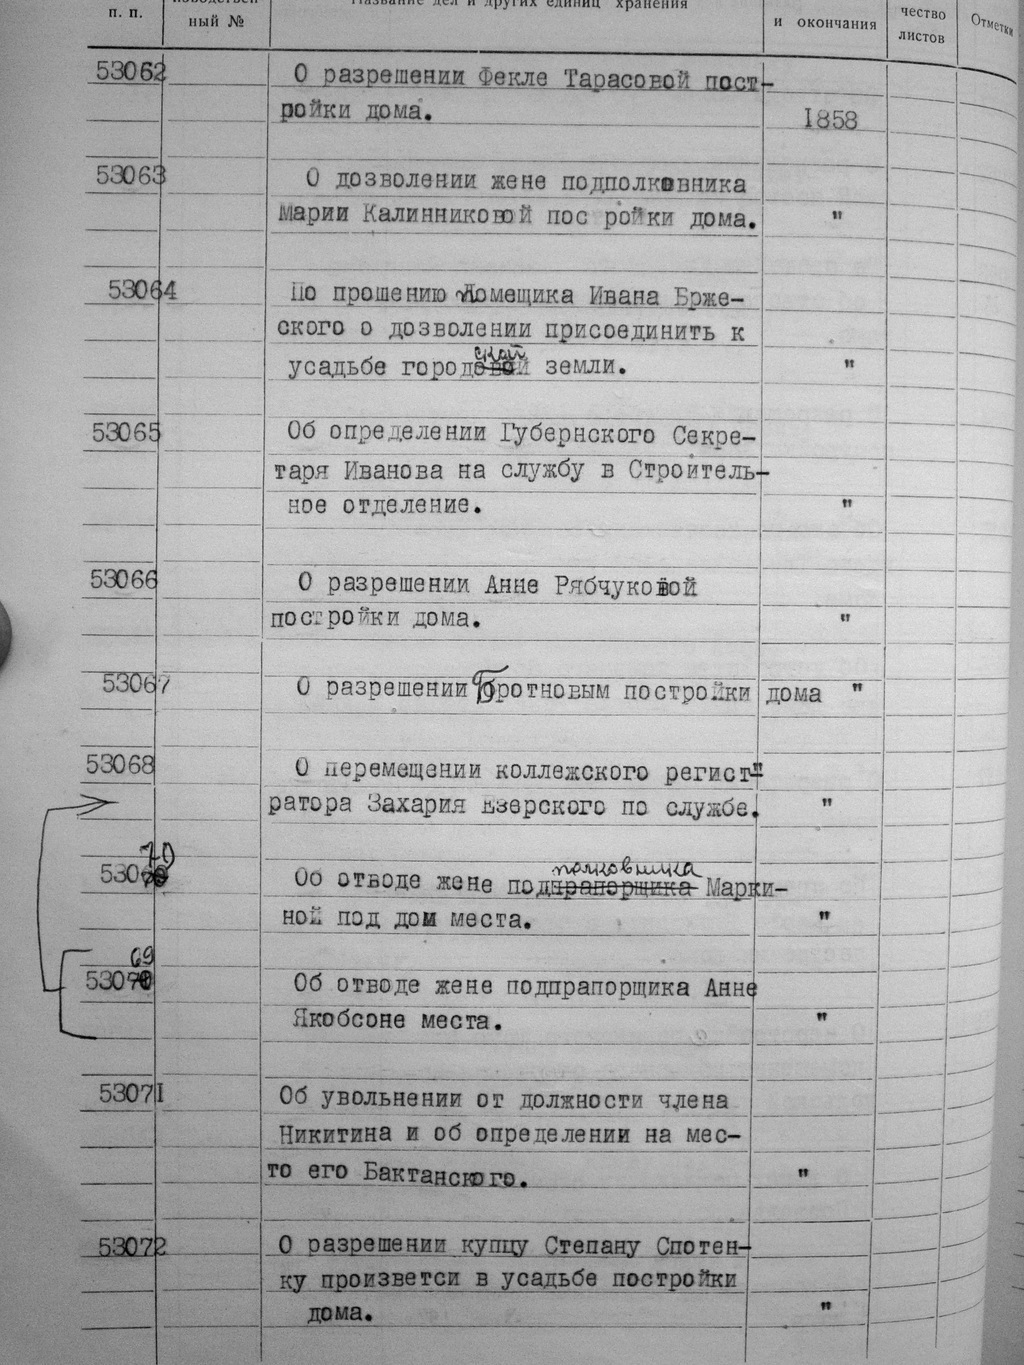 п. п.
ный №
Название дел и других единиц хранения
и окончания
чество
листов
Отметки
53062
О разрешении Фекле Тарасовой пост-
ройки дома.
1858
53063
О дозволении жене подполковника
Марии Калинниковой пос ройки дома.
"
53064
По прошению помещика Ивана Брже-
ского о дозволении присоединить к
ской
усадьбе городовой земли.
"
53065
Об определении Губернского Секре-
таря Иванова на службу в Строитель-
ное отделение.
"
53066
О разрешении Анне Рябчуковой
постройки дома.
"
53067
О разрешении Бротновым постройки дома "
53068
О перемещении коллежского регист-
ратора Захария Езерского по службе.
"
70
53069
полковника
Об отводе жене подпрапорщика Марки-
ной под дом места.
"
69
53070
Об отводе жене подпрапорщика Анне
Якобсоне места.
"
53071
Об увольнении от должности члена
Никитина и об определении на мес-
то его Бактанского.
"
53072
О разрешении купцу Степану Спотен-
ку произветси в усадьбе постройки
дома.
"